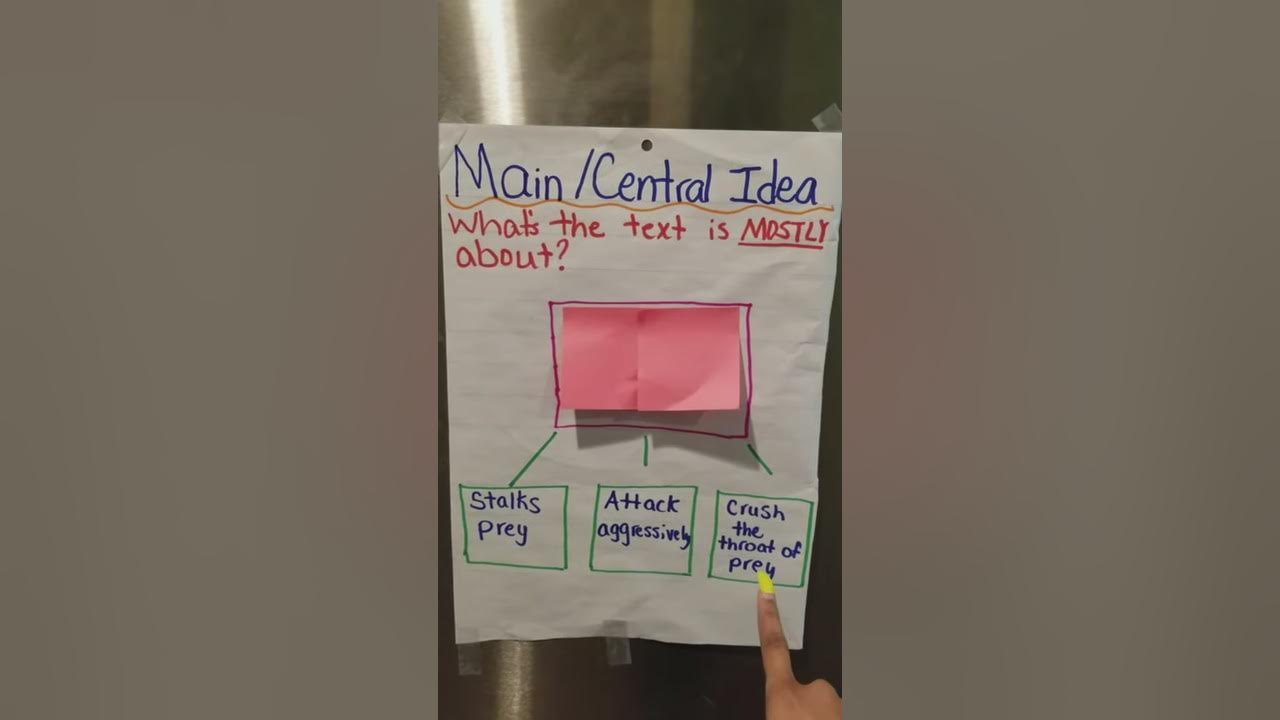 Main/Central Idea
What's the text is MOSTLY
about?
Stalks
prey
Attack
aggressively
Crush
the
throat of
prey